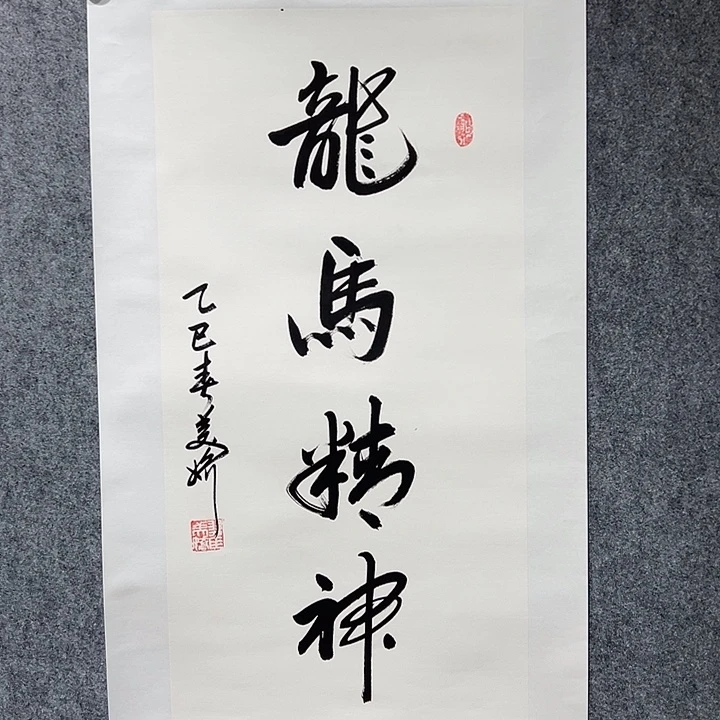 龍馬精神
乙巳春美娇